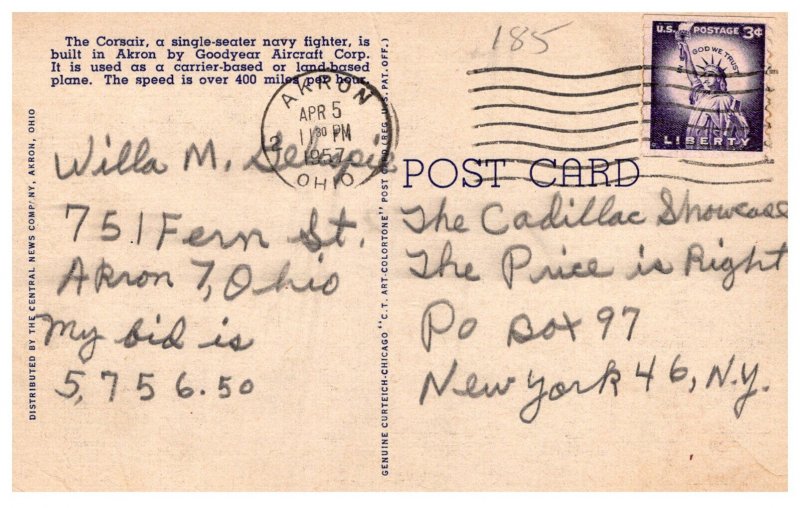 The Corsair, a single-seater navy fighter, is
built in Akron by Goodyear Aircraft Corp.
It is used as a carrier-based or land-based
plane. The speed is over 400 miles per hour.
185
U.S. POSTAGE 3¢
IN GOD WE TRUST
LIBERTY
AKRON
APR 5
11 30 PM
1957
OHIO
2
POST CARD
Willa M.
751 Fern St.
Akron 7, Ohio
My bid is
5,756.50
The Cadillac Showcase
The Price is Right
Po Box 97
New York 46, N.Y.
DISTRIBUTED BY THE CENTRAL NEWS COMPANY, AKRON, OHIO
GENUINE CURTEICH-CHICAGO "C.T. ART-COLORTONE" POST CARD (REG. U.S. PAT. OFF.)